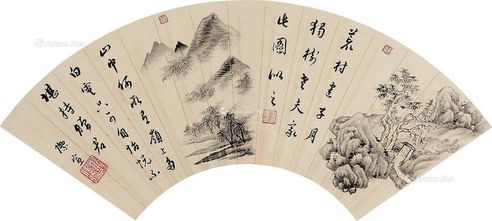 荒村建子月
獨樹老夫家
此圖似之
山中何所有嶺上多
白雲只可自怡悅不
堪持贈君